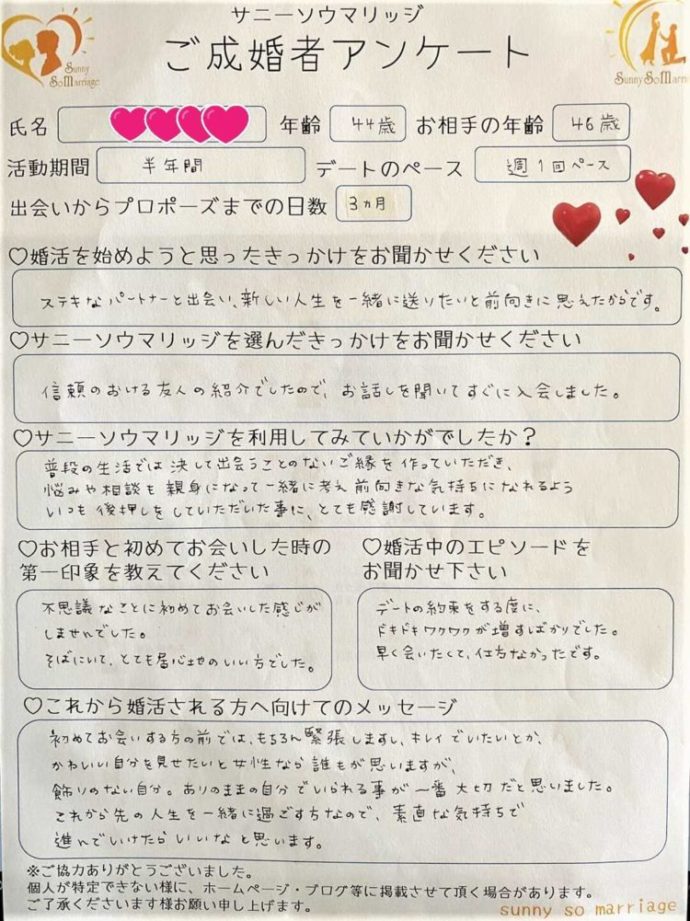 サニーソウマリッジ
ご成婚者アンケート
Sunny
SoMarriage
Sunny SoMarriage
氏名
年齢 44歳 お相手の年齢 46歳
活動期間 半年間 デートのペース 週1回ペース
出会いからプロポーズまでの日数 3ヵ月
♡婚活を始めようと思ったきっかけをお聞かせください
ステキなパートナーと出会い、新しい人生を一緒に送りたいと前向きに思えたからです。
♡サニーソウマリッジを選んだきっかけをお聞かせください
信頼のおける友人の紹介でしたので、お話しを聞いてすぐに入会しました。
♡サニーソウマリッジを利用してみていかがでしたか?
普段の生活では決して出会うことのないご縁を作っていただき、
悩みや相談も親身になって一緒に考え前向きな気持ちになれるよう
いつも後押しをしていただいた事に、とても感謝しています。
♡お相手と初めてお会いした時の
第一印象を教えてください
不思議なことに初めてお会いした感じが
しませんでした。
そばにいて、とても居心地のいい方でした。
♡婚活中のエピソードを
お聞かせ下さい
デートの約束をする度に、
ドキドキワクワクが増すばかりでした。
早く会いたくて、仕方なかったです。
♡これから婚活される方へ向けてのメッセージ
初めてお会いする方の前では、もちろん緊張しますし、キレイでいたいとか、
かわいい自分を見せたいと女性なら誰もが思いますが、
飾りのない自分。ありのままの自分でいられる事が一番大切だと思いました。
これから先の人生を一緒に過ごす方なので、素直な気持ちで
進んでいけたらいいなと思います。
※ご協力ありがとうございました。
個人が特定できない様に、ホームページ・ブログ等に掲載させて頂く場合があります。
ご了承くださいます様お願い申し上げます。
sunny so marriage